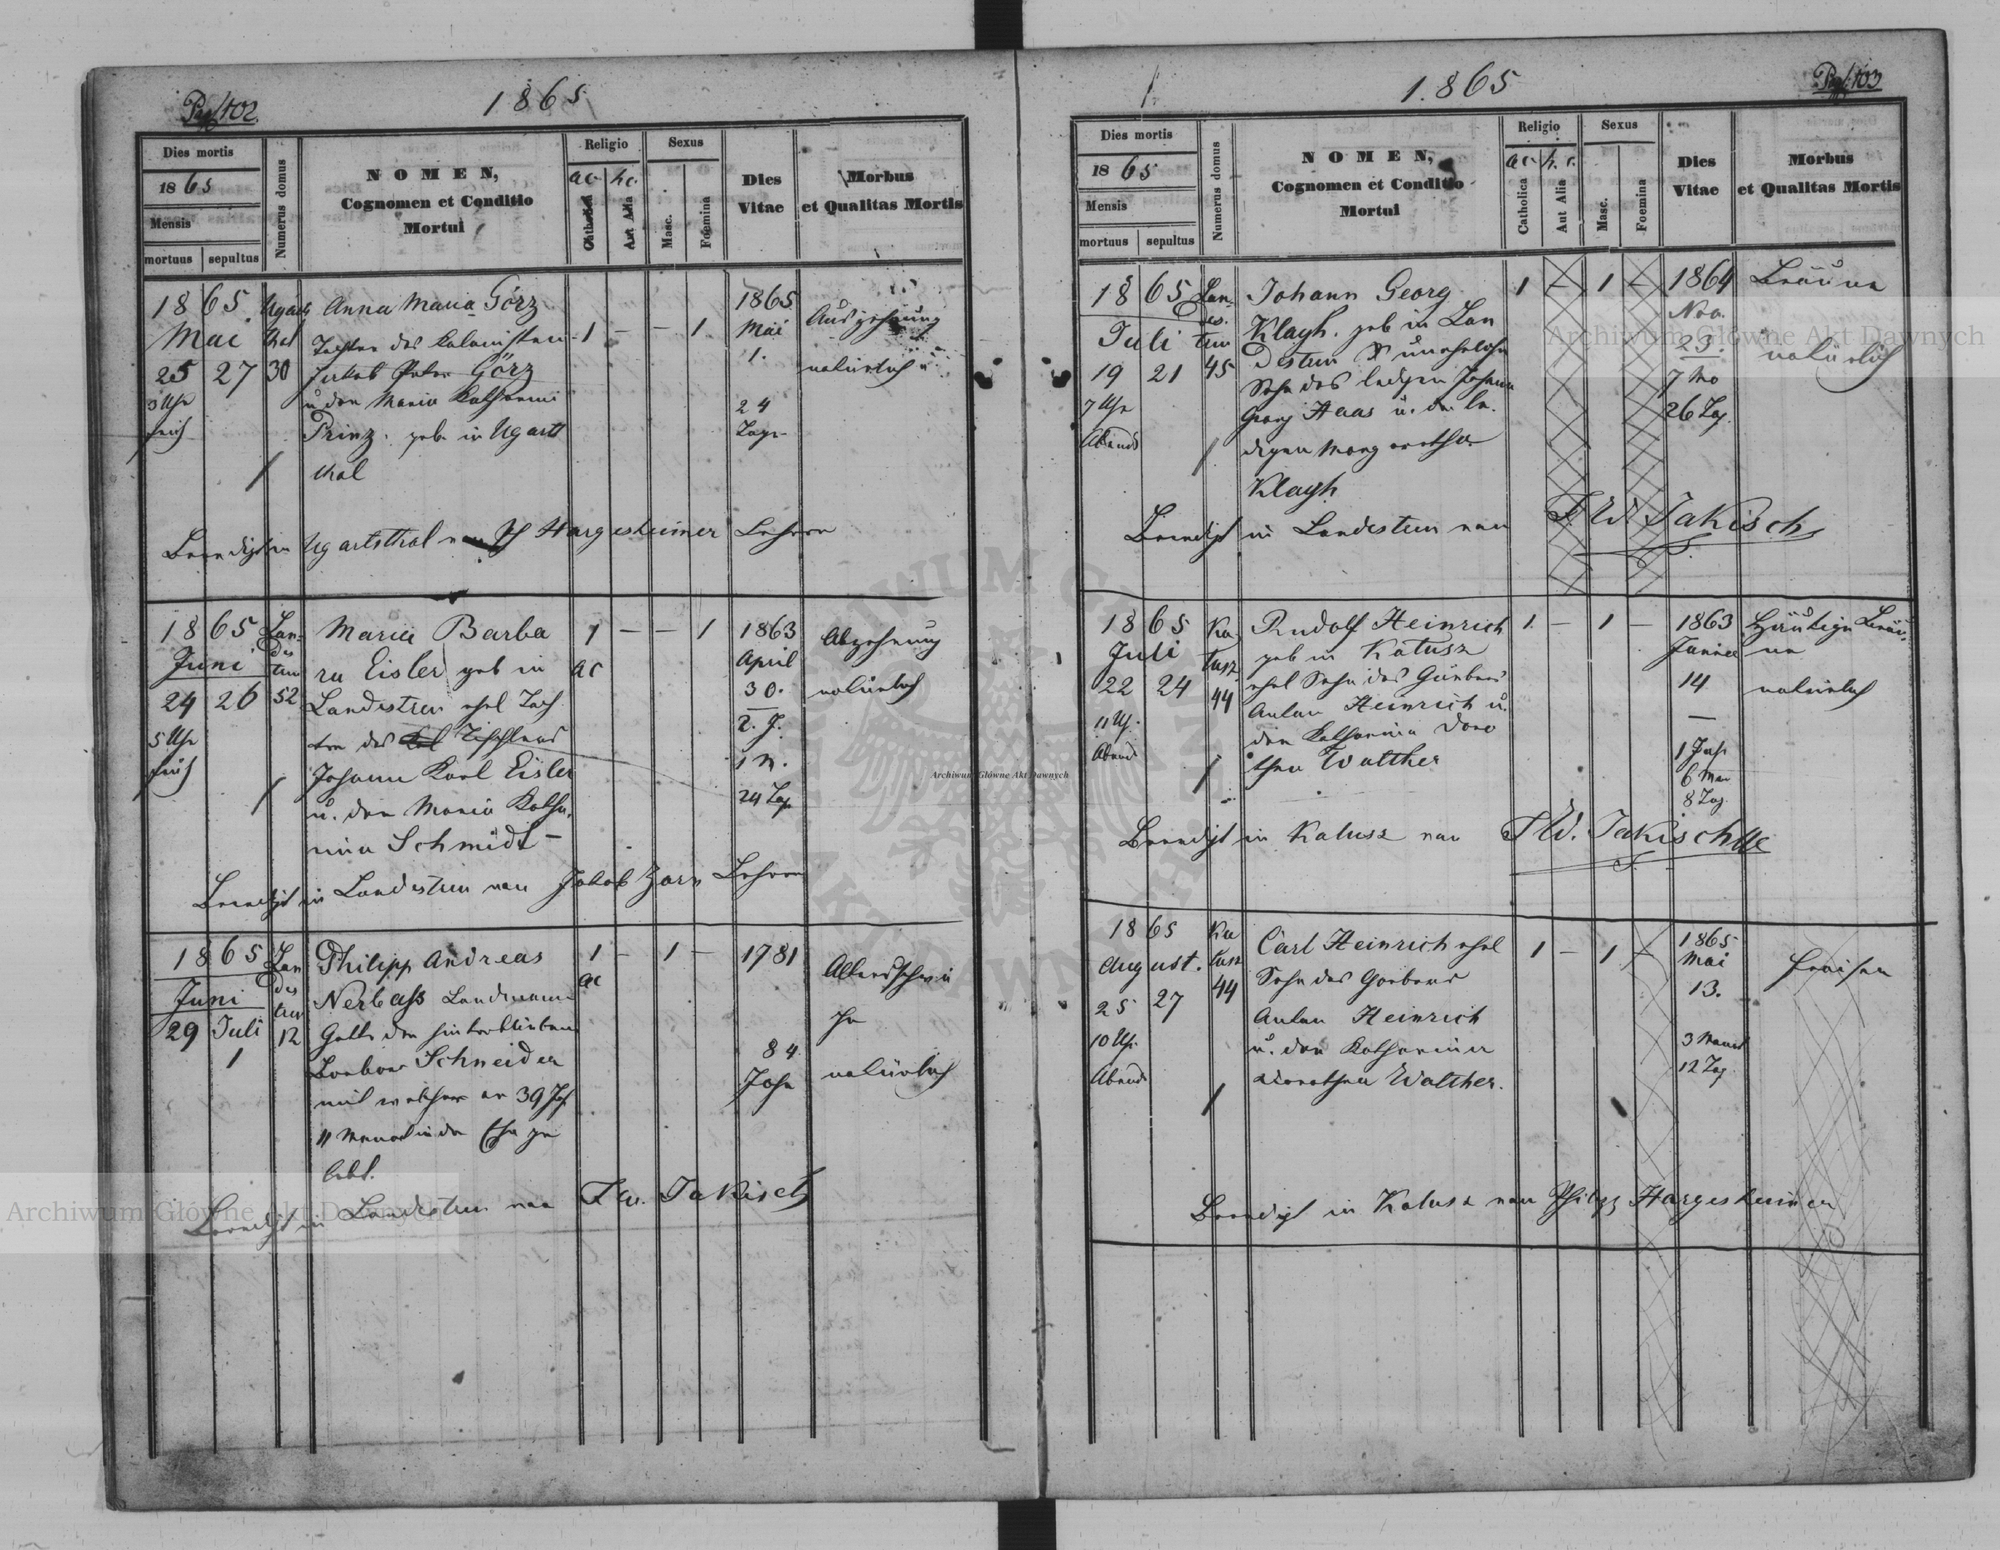 Pag. 102.
1865
Dies mortis
1865
Mensis
mortuus
sepultus
Numerus domus
NOMEN,
Cognomen et Conditio
Mortui
Religio
ac
hc.
Catholica
Aut Alia
Sexus
Masc.
Foemina
Dies
Vitae
Morbus
et Qualitas Mortis
1865
Mai
25 27
Ugarts
thal
30
Anna Maria Görz
Tochter des Kolonisten
Jakob Peter Görz
u. der Maria Katharina
Prinz. geb. in Ugarts
thal
1 — — 1
1865
Mai
1.
24
Tage
Auszehrung
natürlich
3 Uhr
früh
Beerdigt in Ugartsthal von Ph Hargesheimer Lehrer
1865
Juni
24 26
5 Uhr
früh
Lan-
des
treu
52
Maria Barba
ra Eisler geb in
Landestreu ehel Toch
ter des Tischlers
Johann Karl Eisler
u. der Maria Katha
rina Schmidt
1 — — 1
ac
1863
April
30.
2. J.
1 M.
24 Tag
Abzehrung
natürlich
Beerdigt in Landestreu von Jakob Zorn Lehrer
1865
Juni
29 Juli
1
Lan
des
treu
12
Philipp Andreas
Nerbass Landmann
Gatte der hinterbliebenen
Barbara Schneider
mit welcher er 39 Jah
11 Monat in der Ehe ge
lebt.
1 — 1 —
ac
1781
84
Jahr
Altersschwä
che
natürlich
Beerdigt in Landestreu von F W. Jakisch
Pag. 103
1.865
Dies mortis
1865
Mensis
mortuus
sepultus
Numerus domus
NOMEN,
Cognomen et Conditio
Mortui
Religio
ac
h. c.
Catholica
Aut Alia
Sexus
Masc.
Foemina
Dies
Vitae
Morbus
et Qualitas Mortis
1865
Juli
19 21
7 Uhr
Abends
Lan-
des.
treu
45
Johann Georg
Klagh. geb in Lan
destreu unehelicher
Sohn des ledigen Johann
Georg Haas u. der le.
digen Margaretha
Klagh
1 — 1 —
1864
Nov.
23.
7 Mo
26 Tag.
Bräune
natürlich
Beerdigt in Landestreu von F W Jakisch
1865
Juli
22 24
11 Uh.
Abend
Ka
lusz
44
Rudolf Heinrich
geb in Kalusz
ehel Sohn des Gärbers
Anton Heinrich u.
der Katharina Doro
thea Walther
1 — 1 —
1863
Januar
14
—
1 Jahr
6 Mon
8 Tag
Häutige Bräu-
ne
natürlich
Beerdigt in Kalusz von F W. Jakisch
1865
August.
25 27
10 Uh.
Abend
Ka
lusz
44
Carl Heinrich ehel
Sohn des Gärbers
Anton Heinrich
u. der Katharina
Dorothea Walther.
1 — 1 —
1865
Mai
13.
3 Monat
12 Tag
Fraisen
Beerdigt in Kalusz von Philipp Hargesheimer
Archiwum Główne Akt Dawnych
Archiwum Główne Akt Dawnych
Archiwum Główne Akt Dawnych